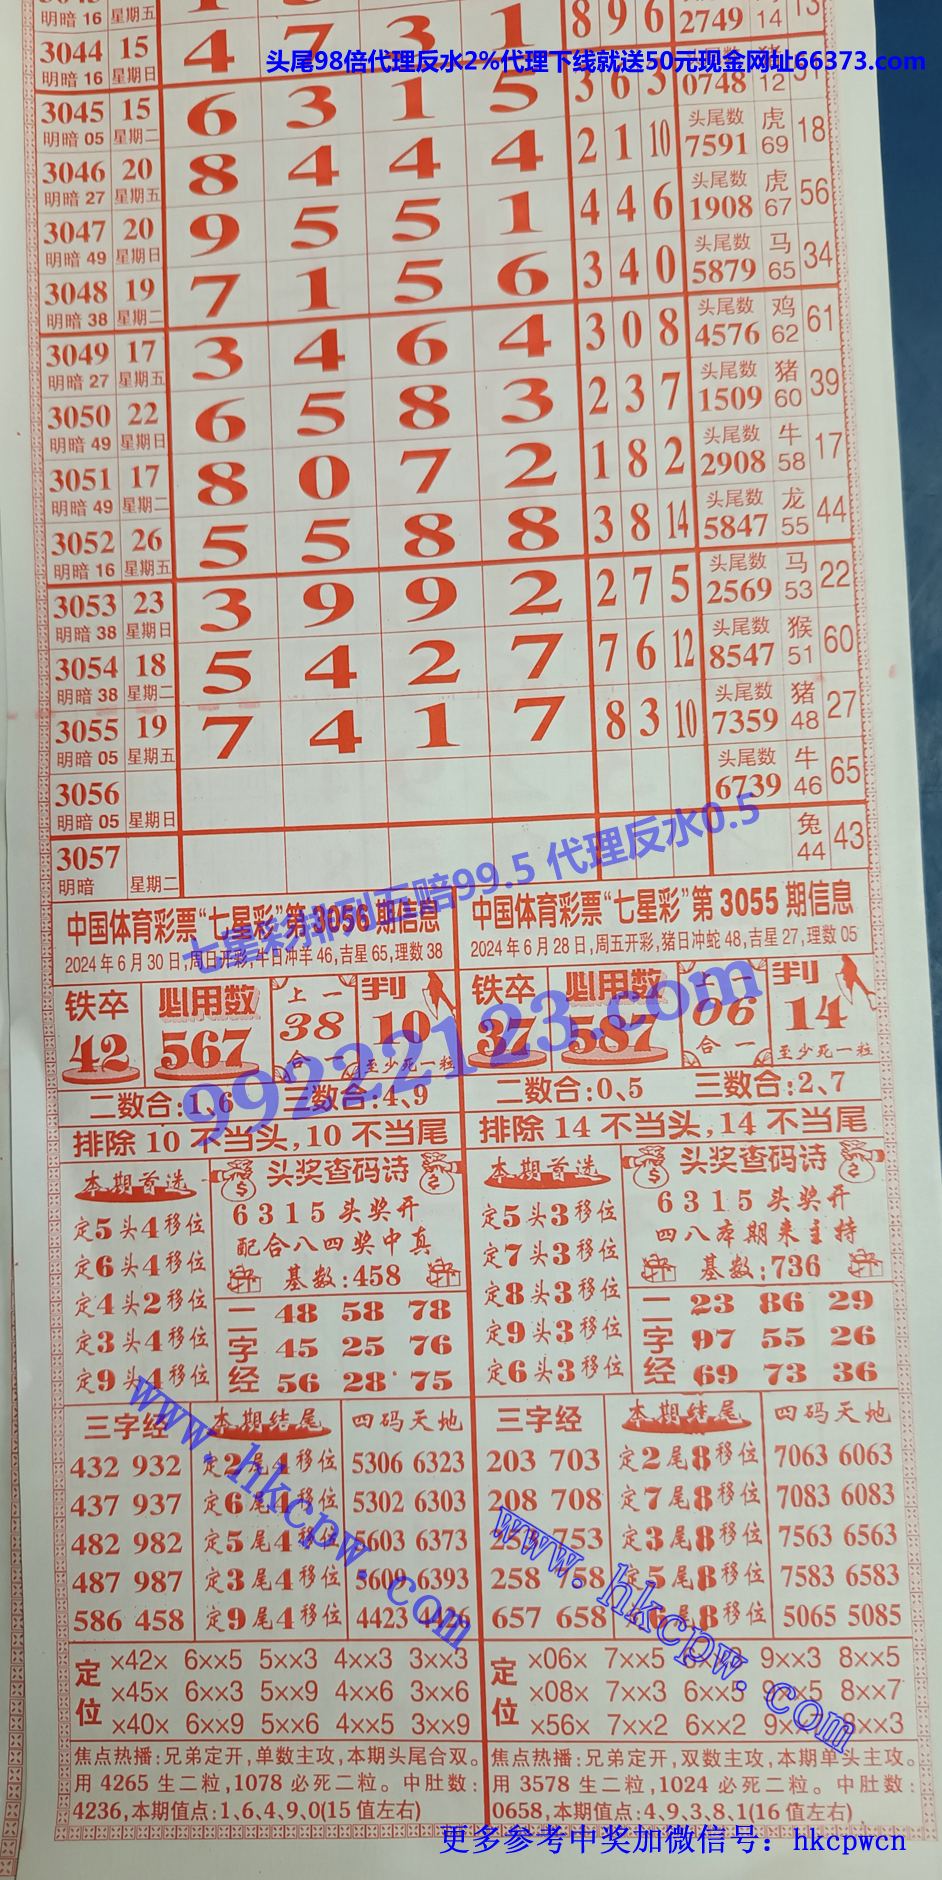 明暗 16 星期五 8 9 6 2749 14 13
头尾98倍代理反水2%代理下线就送50元现金网址66373.com
3044 15 4 7 3 1
明暗 16 星期日 3 6 3 0748 12
3045 15 6 3 1 5 头尾数 虎 18
明暗 05 星期二 2 1 10 7591 69
3046 20 8 4 4 4 头尾数 虎 56
明暗 27 星期五 4 4 6 1908 67
3047 20 9 5 5 1 头尾数 马 34
明暗 49 星期日 3 4 0 5879 65
3048 19 7 1 5 6 头尾数 鸡 61
明暗 38 星期二 3 0 8 4576 62
3049 17 3 4 6 4 头尾数 猪 39
明暗 27 星期五 2 3 7 1509 60
3050 22 6 5 8 3 头尾数 牛 17
明暗 49 星期日 1 8 2 2908 58
3051 17 8 0 7 2 头尾数 龙 44
明暗 49 星期二 3 8 14 5847 55
3052 26 5 5 8 8 头尾数 马 22
明暗 16 星期五 2 7 5 2569 53
3053 23 3 9 9 2 头尾数 猴 60
明暗 38 星期日 7 6 12 8547 51
3054 18 5 4 2 7 头尾数 猪 27
明暗 38 星期二 8 3 10 7359 48
3055 19 7 4 1 7 头尾数 牛 65
明暗 05 星期五 6739 46
3056 兔 43
明暗 05 星期日 44
3057
明暗 星期二
七星彩排列五赔99.5 代理反水0.5
99222123.com
中国体育彩票“七星彩”第 3056 期信息
2024年6月30日,周日开彩,牛日冲羊46,吉星65,理数38
铁卒 必用数 上一 判
42 567 38 10
合一 至少死一粒
二数合:1、6 三数合:4、9
排除 10 不当头,10 不当尾
本期首选 头奖查码诗
定5头4移位 6315头奖开
定6头4移位 配合八四奖中真
定4头2移位 基数:458
定3头4移位
定9头4移位
二字经
48 58 78
45 25 76
56 28 75
三字经 本期结尾 四码天地
432 932 定2尾4移位 5306 6323
437 937 定6尾4移位 5302 6303
482 982 定5尾4移位 5603 6373
487 987 定3尾4移位 5609 6393
586 458 定9尾4移位 4423 4426
定位
×42× 6××5 5××3 4××3 3××3
×45× 6××3 5××9 4××6 3××6
×40× 6××9 5××6 4××5 3××9
焦点热播:兄弟定开,单数主攻,本期头尾合双。
用 4265 生二粒,1078 必死二粒。中肚数:
4236,本期值点:1、6、4、9、0(15值左右)
中国体育彩票“七星彩”第 3055 期信息
2024年6月28日,周五开彩,猪日冲蛇48,吉星27,理数05
铁卒 必用数 上一 判
37 587 06 14
合一 至少死一粒
二数合:0、5 三数合:2、7
排除 14 不当头,14 不当尾
本期首选 头奖查码诗
定5头3移位 6315头奖开
定7头3移位 四八本期来主持
定8头3移位 基数:736
定9头3移位
定6头3移位
二字经
23 86 29
97 55 26
69 73 36
三字经 本期结尾 四码天地
203 703 定2尾8移位 7063 6063
208 708 定7尾8移位 7083 6083
253 753 定3尾8移位 7563 6563
258 758 定5尾8移位 7583 6583
657 658 定6尾8移位 5065 5085
定位
×06× 7××5 9××3 8××5
×08× 7××3 6××5 9××5 8××7
×56× 7××2 6××2 8××3
焦点热播:兄弟定开,双数主攻,本期单头主攻。
用 3578 生二粒,1024 必死二粒。中肚数:
0658,本期值点:4、9、3、8、1(16值左右)
www.hkcpw.com
www.hkcpw.com
更多参考中奖加微信号：hkcpwcn